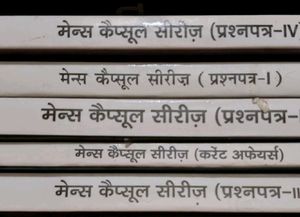 मेन्स कैप्सूल सीरीज़ (प्रश्नपत्र-IV
मेन्स कैप्सूल सीरीज़ ( प्रश्नपत्र-I )
मेन्स कैप्सूल सीरीज़ (प्रश्नपत्र-
मेन्स कैप्सूल सीरीज़ (करेंट अफेयर्स)
मेन्स कैप्सूल सीरीज़ (प्रश्नपत्र-II